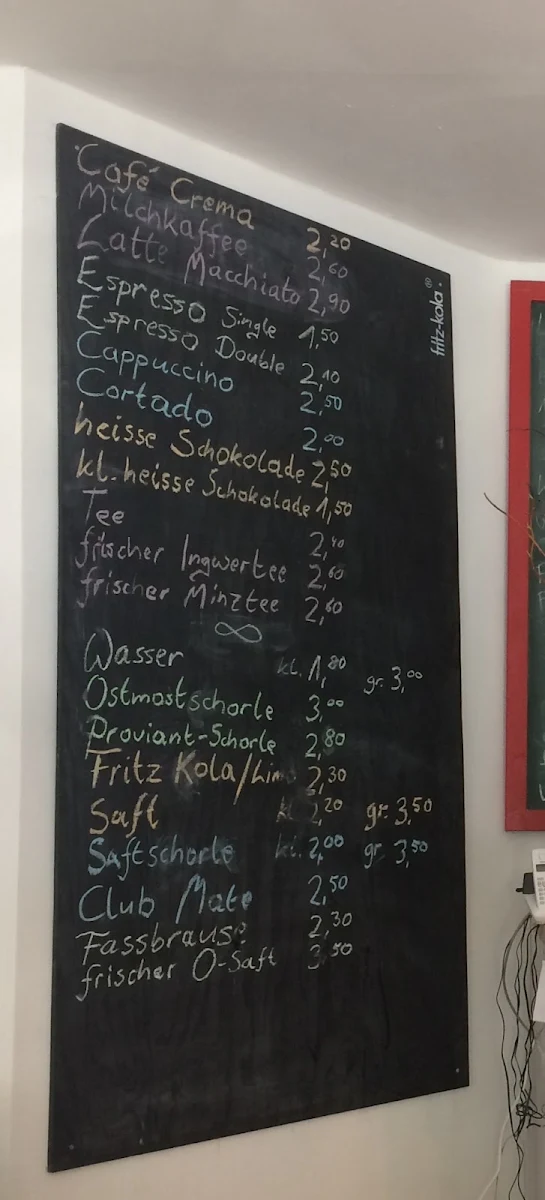 Café Crema 2,20
Milchkaffee 2,60
Latte Macchiato 2,90
Espresso Single 1,50
Espresso Double 2,10
Cappuccino 2,50
Cortado 2,00
heisse Schokolade 2,50
kl. heisse Schokolade 1,50
Tee 2,40
frischer Ingwertee 2,60
frischer Minztee 2,60
Wasser kl. 1,80 gr. 3,00
Ostmostschorle 3,00
Proviant-Schorle 2,80
Fritz Kola/Limo 2,30
Saft kl. 2,20 gr. 3,50
Saftschorle kl. 2,00 gr. 3,50
Club Mate 2,50
Fassbrause 2,30
frischer O-Saft 3,50
fritz-kola®